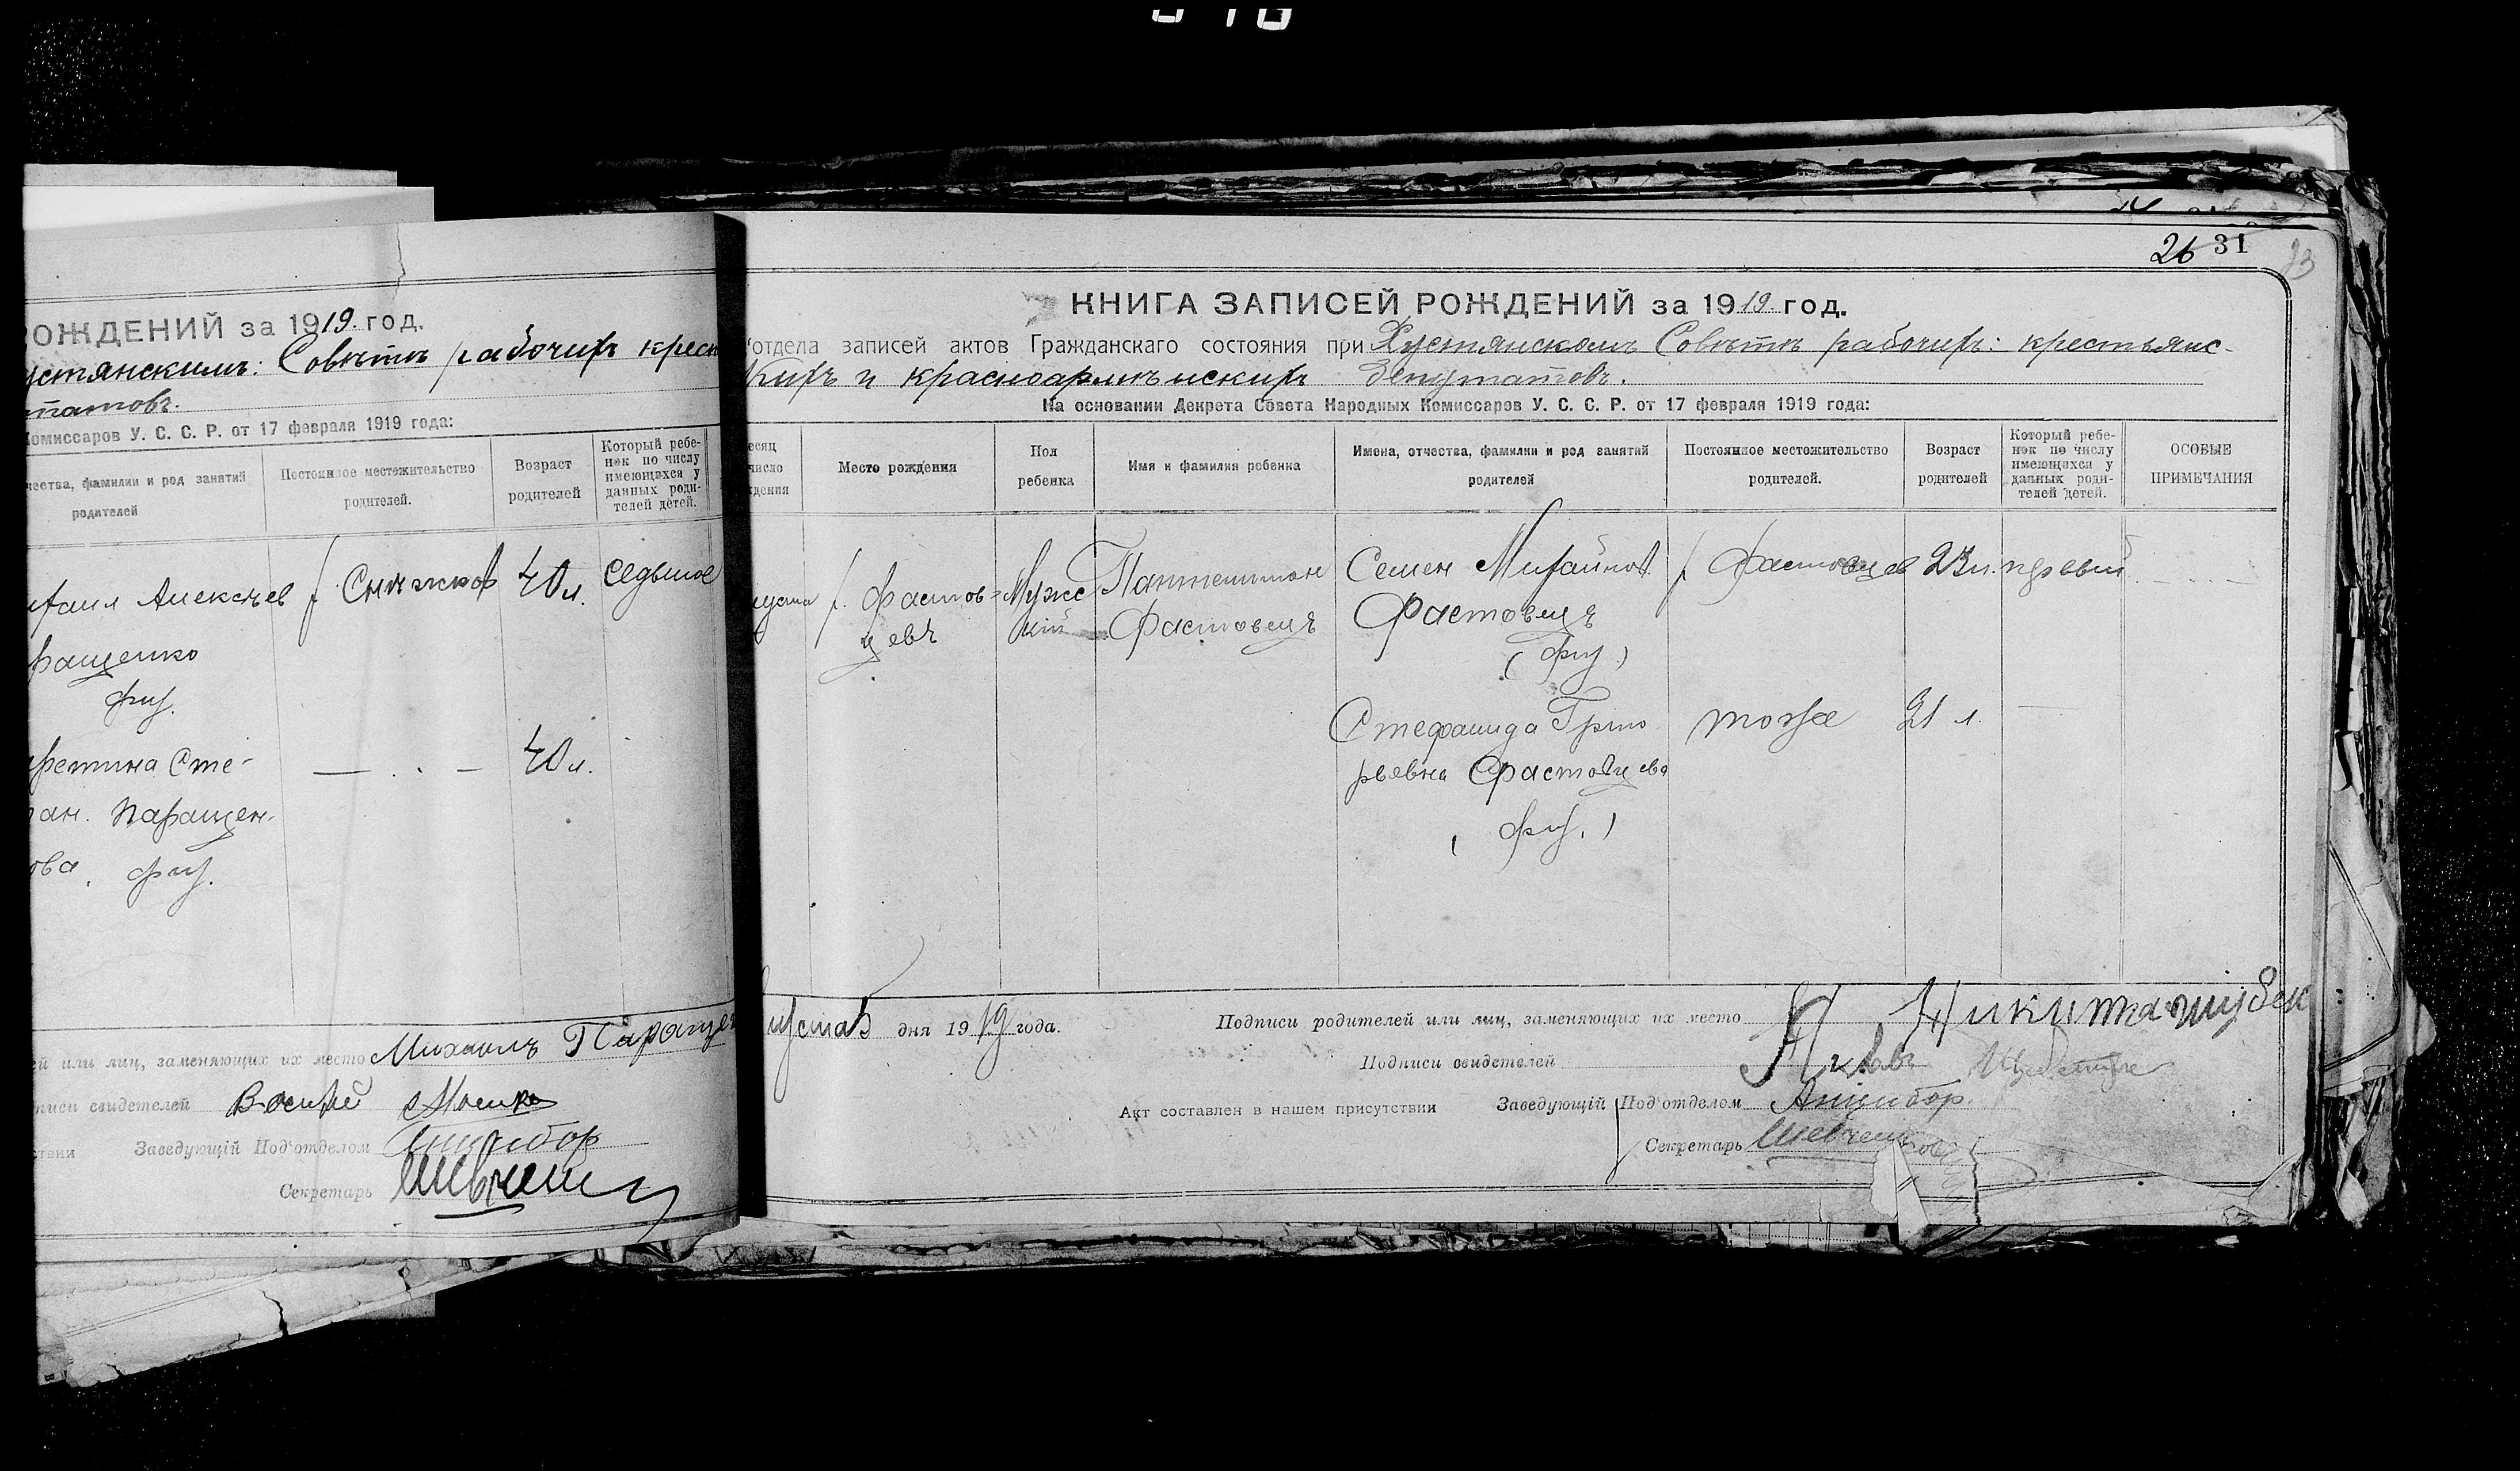 РОЖДЕНИЙ за 1919. год.
устянскимъ: Совѣтѣ рабочихъ кресть
татовъ.
Комиссаров У. С. С. Р. от 17 февраля 1919 года:
чества, фамилии и род занятий
родителей
Постоянное местожительство
родителей.
Возраст
родителей
Который ребе-
нок по числу
имеющихся у
данных роди-
телей детей.
хаил Алексѣев
х. Снѣжков
40 л.
седьмое
ращенко
фиу.
Сте-
— . . —
40 л.
ан. Паращен-
ова. фиу.
ей или лиц, заменяющих их место Михаилъ Паращен
писи свидетелей
ствия Заведующій Под'отделом Анцибор
Секретарь
26 31
КНИГА ЗАПИСЕЙ РОЖДЕНИЙ за 1919. год.
'отдела записей актов Гражданскаго состояния при Хустянскомъ Совѣтѣ рабочихъ: крестьянс-
кихъ и красноармѣискихъ депутатовъ.
На основании Декрета Совета Народных Комиссаров У. С. С. Р. от 17 февраля 1919 года:
есяц
число
ждения
Место рождения
Пол
ребенка
Имя и фамилия ребенка
Имена, отчества, фамилии и род занятий
родителей
Постоянное местожительство
родителей.
Возраст
родителей
Который ребе-
нок по числу
имеющихся у
данных роди-
телей детей.
ОСОБЫЕ
ПРИМЕЧАНИЯ
густа
х. Фастов-
цевъ
Мужс
кій
Пантелимон
Фастовецъ
Семен Михайлов.
Фастовецъ
(фиу.)
х Фастовцев
23 л.
первый
Стефанида Григо
рьевна Фастовцева
(фиу.)
тоже
21 л.
—
густаъ дня 1919 года.
Подписи родителей или лиц, заменяющих их место Никита
Подписи свидетелей
Акт составлен в нашем присутствии Заведующій Под'отделом Анцибор.
Секретарь